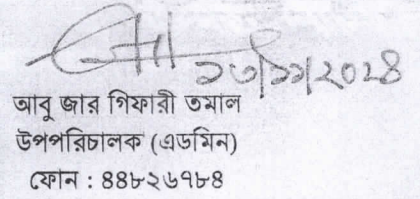 ১৩/১১/২০২৪
আবু জার গিফারী তমাল
উপপরিচালক (এডমিন)
ফোন : ৪৪৮২৬৭৮৪